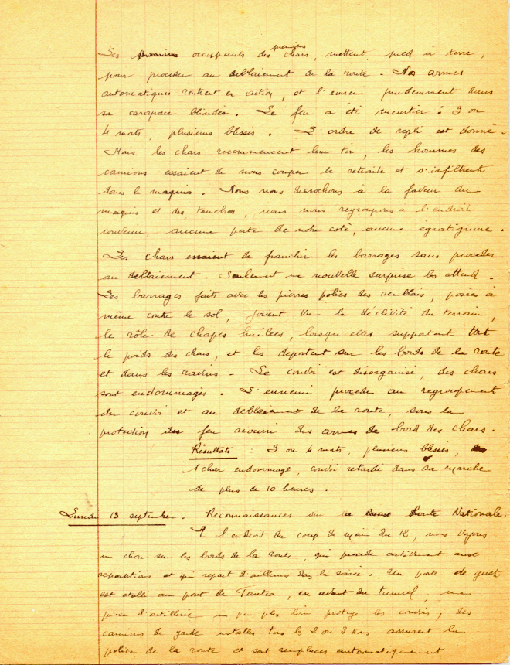 Les occupants des premiers chars, mettent pied à terre,
pour procéder au déblaiement de la route. Nos armes
automatiques entrent en action, et l'ennemi prudemment dans
sa carapace blindée. Le feu a été meurtrier : 3 ou
4 morts, plusieurs blessés. L'ordre de repli est donné.
Mais les chars recommencent leur tir, les hommes des
camions essaient de nous couper la retraite et s'infiltrent
dans le maquis. Nous nous décrochons à la faveur du
maquis et des tranchées, nous nous regroupons à l'endroit
convenu aucune perte de notre côté, aucune égratignure.
Les chars essaient de franchir les barrages sans procéder
au déblaiement. Seulement une nouvelle surprise les attend.
Les barrages faits avec les pierres polies des remblais, posées à
même contre le sol, jouent vu la déclivité du terrain,
le rôle de charges lorsque elles supportent tout
le poids des chars, et les déportent sur les bords de la route
et dans les ravins. Le convoi est désorganisé, des chars
sont endommagés. L'ennemi procède au regroupement
du convoi et au déblaiement de la route, sous la
protection du feu nourri des armes de bord des chars.
Résultats : 3 ou 4 morts, plusieurs blessés,
1 char endommagé, convoi retardé dans sa marche
de plus de 10 heures.
Lundi 13 septembre. Reconnaissances sur la Route Nationale.
A l'endroit du coup de main du 12, nous voyons
un char sur les bords de la route, qui procède
réparations et qui repart d'ailleurs dans la soirée. Un poste de guet
est établi au pont de en avant du tunnel, une
pièce d'artillerie un peu plus loin protège les convois, des
camions de garde installés tous les 2 ou 3 kms assurent la
police de la route et sont remplacés automatiquement